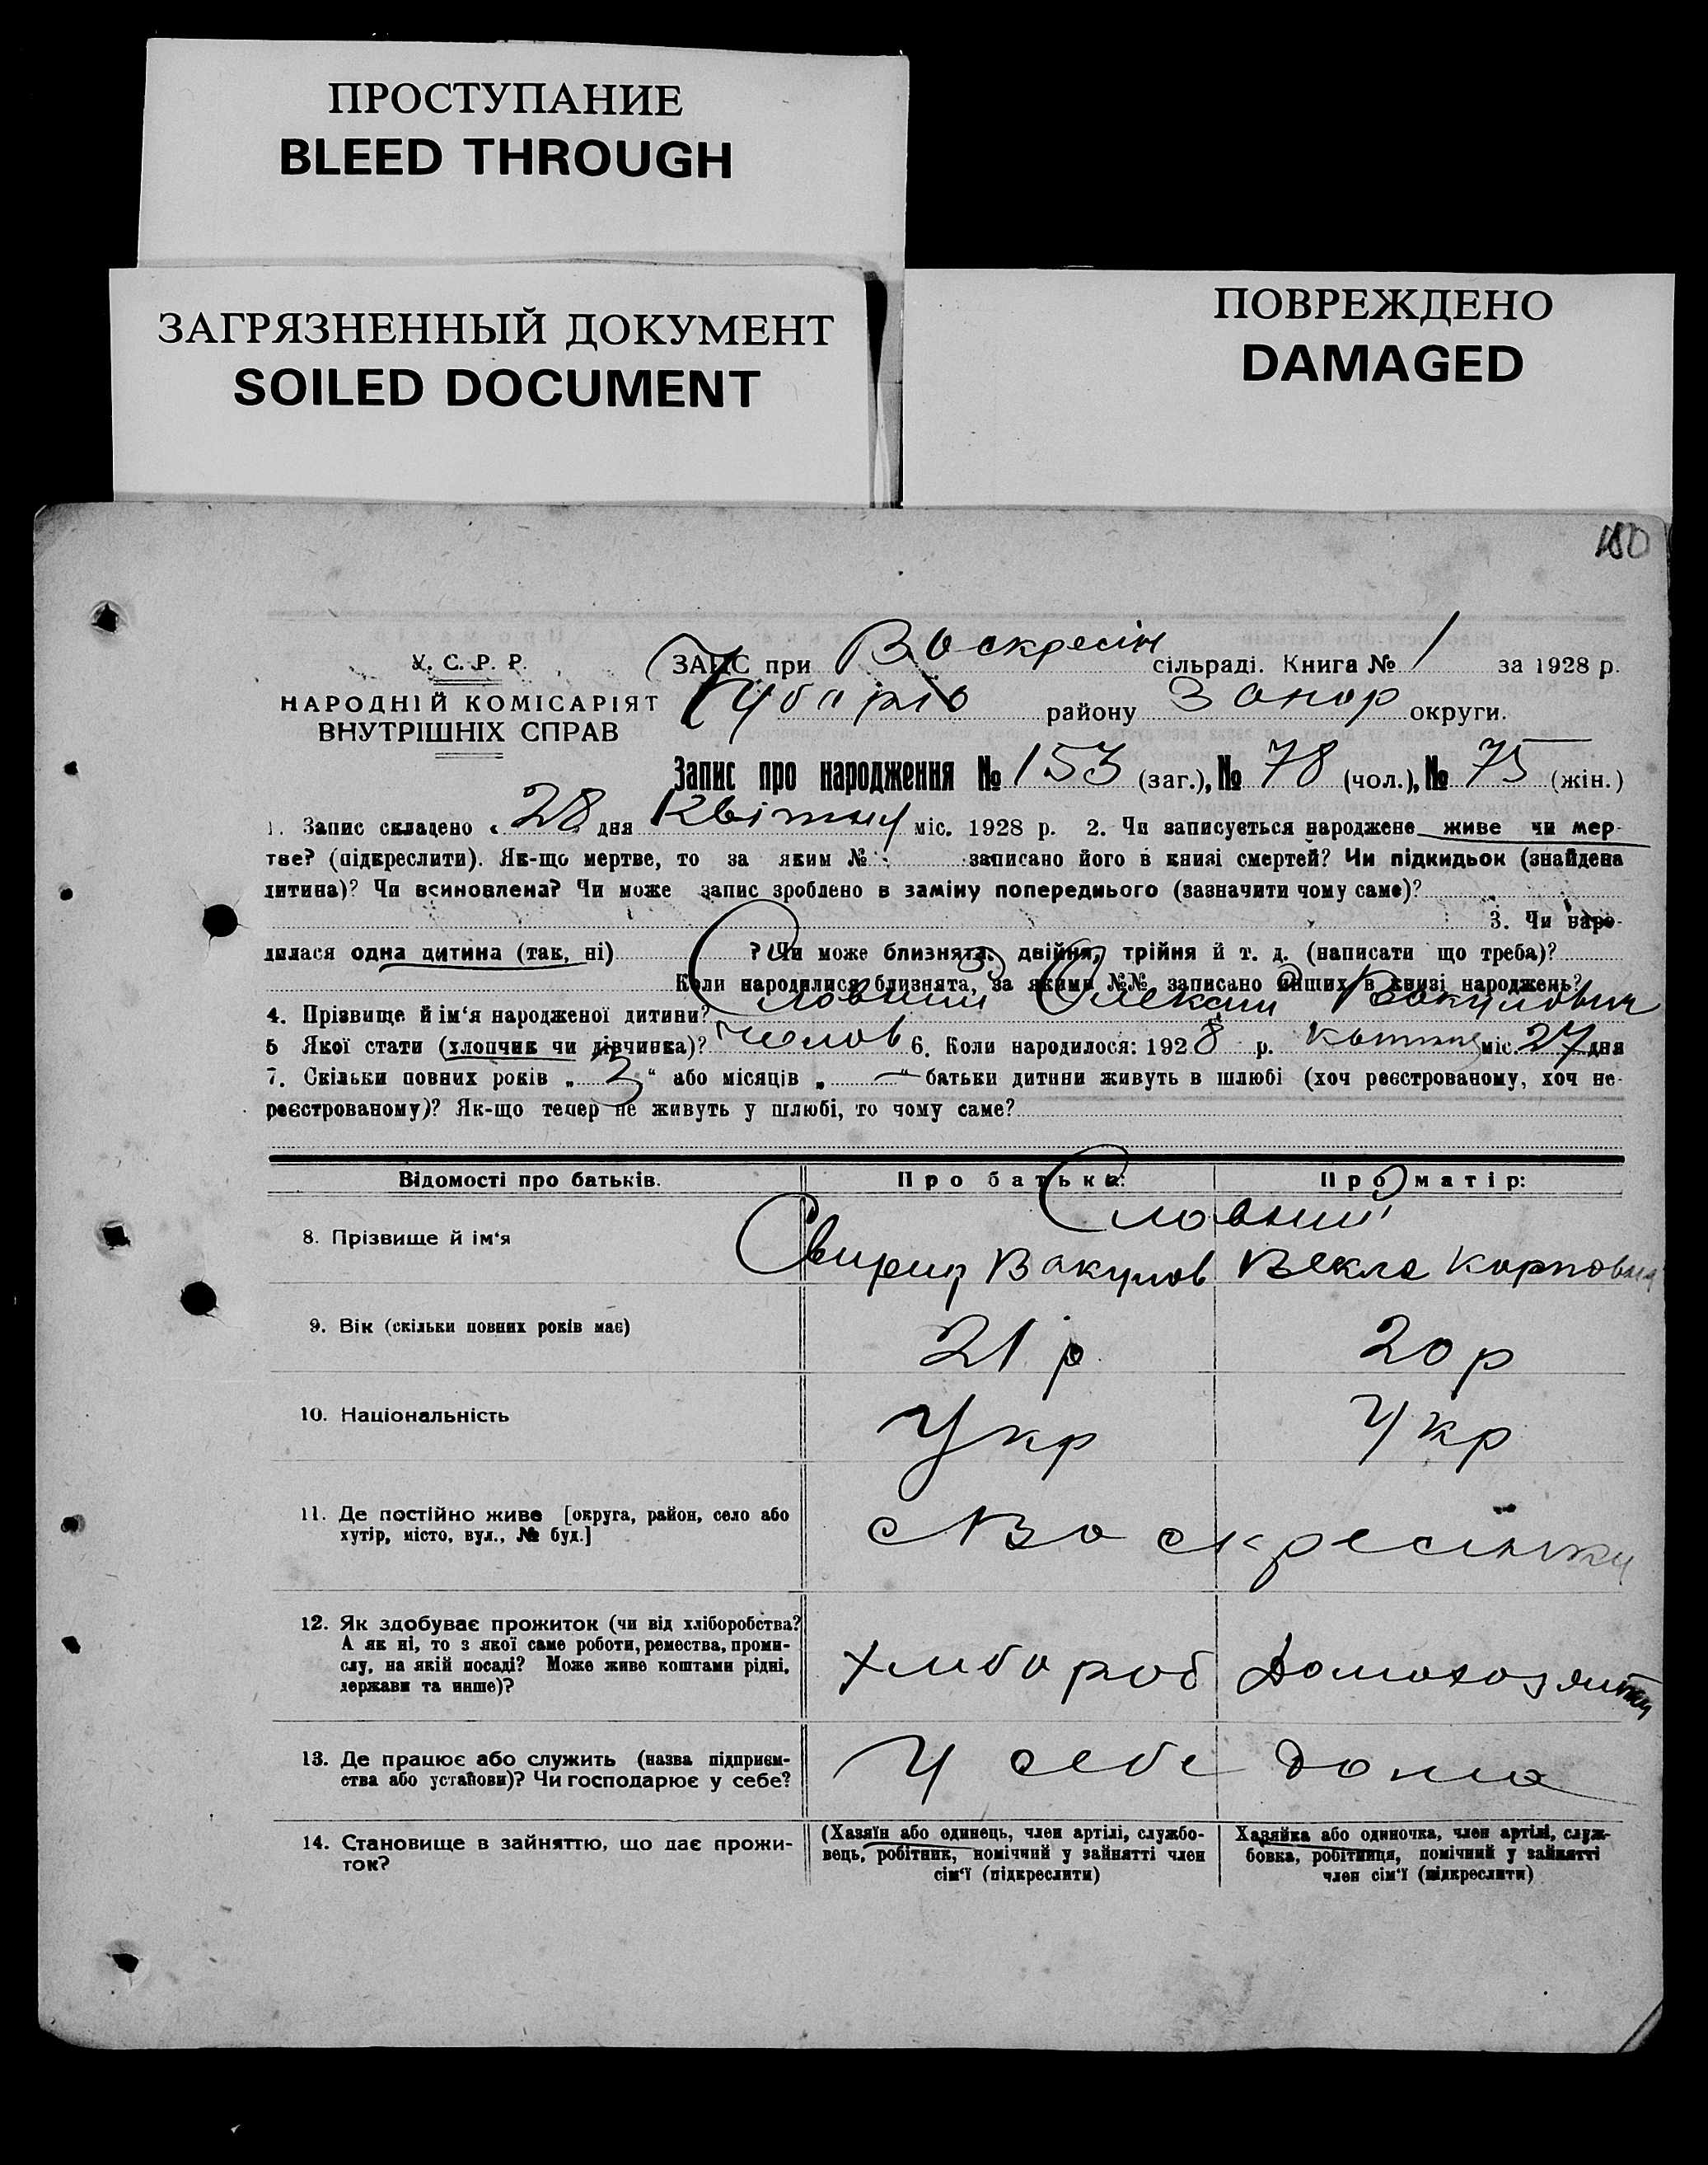 ПРОСТУПАНИЕ
BLEED THROUGH
ЗАГРЯЗНЕННЫЙ ДОКУМЕНТ
SOILED DOCUMENT
ПОВРЕЖДЕНО
DAMAGED
180
У. С. Р. Р.
НАРОДНІЙ КОМІСАРІЯТ
ВНУТРІШНІХ СПРАВ
ЗАГС при Воскресін сільраді. Книга № 1 за 1928 р.
району Запор округи.
Запис про народження № 153 (заг.), № 78 (чол.), № 75 (жін.)
1. Запис складено « 28 дня Квітня міс. 1928 р. 2. Чи записується народжене живе чи мер-
тве? (підкреслити). Як-що мертве, то за яким № записано його в книзі смертей? Чи підкидьок (знайдена
дитина)? Чи всиновлена? Чи може запис зроблено в заміну попереднього (зазначити чому саме)?
3. Чи наро-
дилася одна дитина (так, ні) ? Чи може близнята, двійня, трійня й т. д. (написати що треба)?
Коли народилися близнята, за якими №№ записано инших в книзі народжень?
4. Прізвище й ім'я народженої дитини? Словний Олексій Вакулович
5 Якої статі (хлопчик чи дівчинка)? Чолов 6. Коли народилося: 1928 р. Квітня міс. 27 дня
7. Скільки повних років „ 3 “ або місяців „ — “ батьки дитини живуть в шлюбі (хоч реєстрованому, хоч не-
реєстрованому)? Як-що тепер не живуть у шлюбі, то чому саме?
Відомості про батьків. Про батька: Про матір:
8. Прізвище й ім'я Словний
Свирид Вакулов Векла Карповна
9. Вік (скільки повних років має) 21 р. 20 р
10. Національність Укр Укр
11. Де постійно живе [округа, район, село або
хутір, місто, вул., № буд.] с Воскресінки
12. Як здобуває прожиток (чи від хліборобства?
А як ні, то з якої саме роботи, ремества, проми-
слу, на якій посаді? Може живе коштами рідні,
держави та инше)? Хлибороб
13. Де працює або служить (назва підприєм-
ства або установи)? Чи господарює у себе? У себе дома
14. Становище в зайняттю, що дає прожи-
ток?
(Хазяїн або одинець, член артілі, службо-
вець, робітник, помічний у зайнятті член
сім'ї (підкреслити)
Хазяйка або одиночка, член артілі, служ-
бовка, робітниця, помічний у зайнятті
член сім'ї (підкреслити)